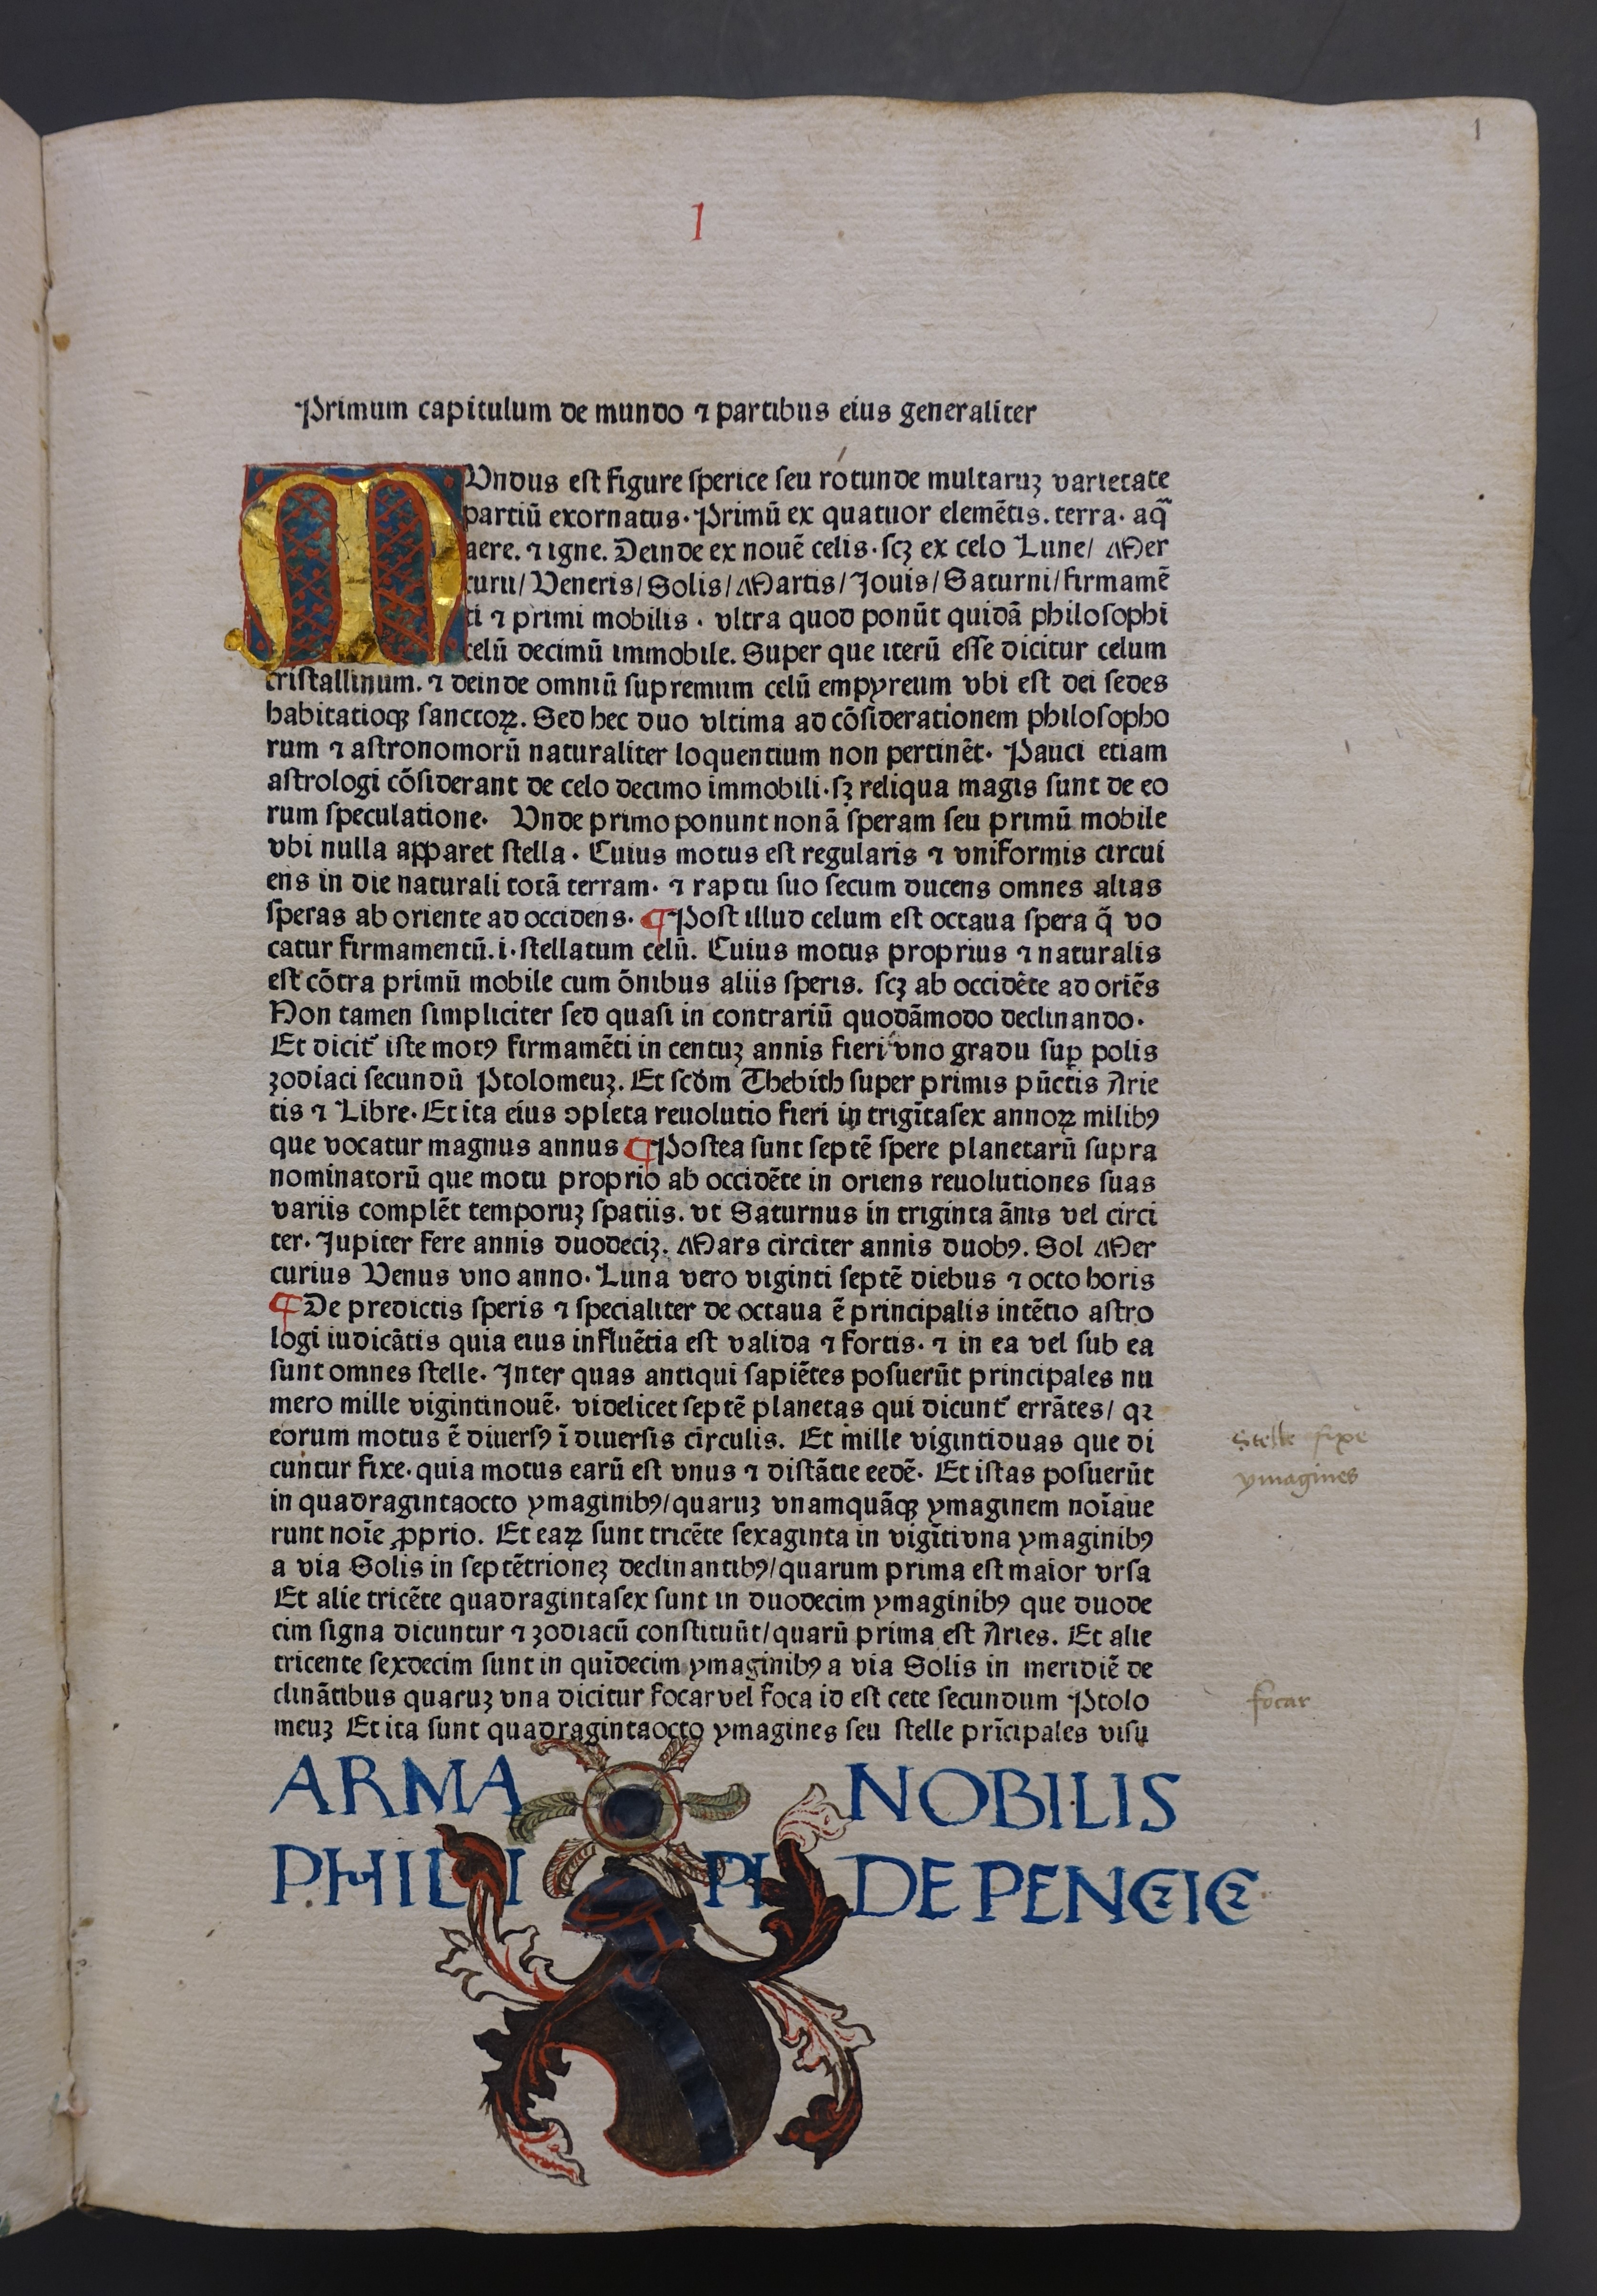 1
1
Primum capitulum de mundo ⁊ partibus eius generaliter
MVndus est figure sperice seu rotunde multaruꝫ varietate
partiū exornatus. Primū ex quatuor elemētis. terra. aq̄
aere. ⁊ igne. Deinde ex nouē celis. scꝫ ex celo Lune/ Mer
curii/ Veneris/ Solis/ Martis/ Jouis/ Saturni/ firmamē
ti ⁊ primi mobilis. vltra quod ponūt quidā philosophi
celū decimū immobile. Super que iterū esse dicitur celum
cristallinum. ⁊ deinde omniū supremum celū empyreum vbi est dei sedes
habitatioqꝫ sanctoꝝ. Sed hec duo vltima ad cōsiderationem philosopho
rum ⁊ astronomorū naturaliter loquentium non pertinēt. Pauci etiam
astrologi cōsiderant de celo decimo immobili. sꝫ reliqua magis sunt de eo
rum speculatione. Vnde primo ponunt nonā speram seu primū mobile
vbi nulla apparet stella. Cuius motus est regularis ⁊ vniformis circui
ens in die naturali totā terram. ⁊ raptu suo secum ducens omnes alias
speras ab oriente ad occidens. ¶ Post illud celum est octaua spera q̄ vo
catur firmamentū. i. stellatum celū. Cuius motus proprius ⁊ naturalis
est cōtra primū mobile cum ōnibus aliis speris. scꝫ ab occidēte ad oriēs
Non tamen simpliciter sed quasi in contrariū quodāmodo declinando.
Et dicit᷑ iste motꝰ firmamēti in centuꝫ annis fieri vno gradu suꝑ polis
zodiaci secundū Ptolomeuꝫ. Et scd̄m Thebith super primis pūctis Arie
tis ⁊ Libre. Et ita eius ꝯpleta reuolutio fieri in trigītasex annoꝝ milibꝰ
que vocatur magnus annus ¶ Postea sunt septē spere planetarū supra
nominatorū que motu proprio ab occidēte in oriens reuolutiones suas
variis complēt temporuꝫ spatiis. vt Saturnus in triginta ānis vel circi
ter. Jupiter fere annis duodeciꝫ. Mars circiter annis duobꝰ. Sol Mer
curius Venus vno anno. Luna vero viginti septē diebus ⁊ octo horis
¶ De predictis speris ⁊ specialiter de octaua ē principalis intētio astro
logi iudicātis quia eius influētia est valida ⁊ fortis. ⁊ in ea vel sub ea
sunt omnes stelle. Inter quas antiqui sapiētes posuerūt principales nu
mero mille vigintinouē. videlicet septē planetas qui dicunt᷑ errātes/ qꝛ
eorum motus ē diuersꝰ ī diuersis circulis. Et mille vigintiduas que di
cuntur fixe. quia motus earū est vnus ⁊ distātie eedē. Et istas posuerūt
in quadragintaocto ymaginibꝰ/ quaruꝫ vnamquāqꝫ ymaginem noīaue
runt noīe ꝓprio. Et eaꝝ sunt tricēte sexaginta in vigītivna ymaginibꝰ
a via Solis in septētrioneꝫ declinantibꝰ/ quarum prima est maior vrsa
Et alie tricēte quadragintasex sunt in duodecim ymaginibꝰ que duode
cim signa dicuntur ⁊ zodiacū constituūt/ quarū prima est Aries. Et alie
tricente sexdecim sunt in quīdecim ymaginibꝰ a via Solis in meridiē de
clināntibus quaruꝫ vna dicitur focar vel foca id est cete secundum Ptolo
meuꝫ Et ita sunt quadragintaocto ymagines seu stelle prīcipales visu
Stelle fixe
ymagines
focar
ARMA NOBILIS
PHILIPI DE PENCIC